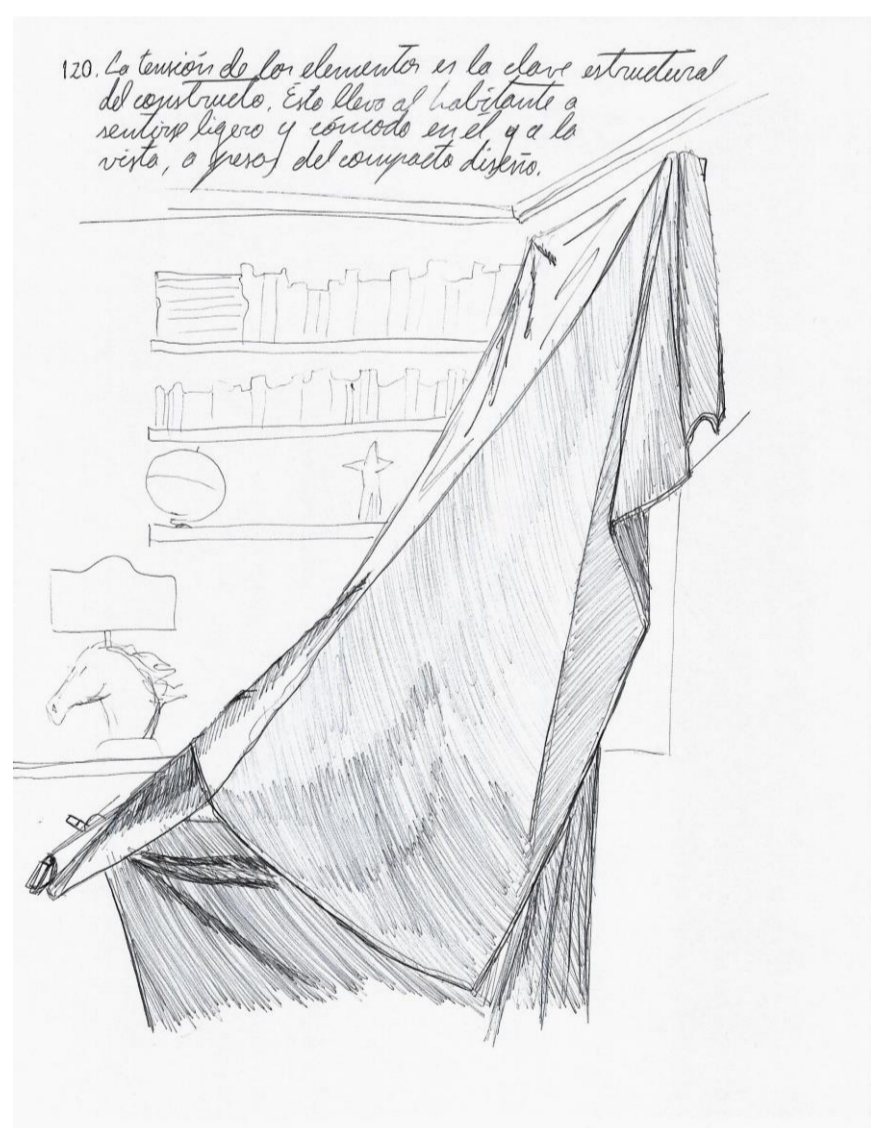 120. La tensión de los elementos es la clave estructural
del constructo. Esto lleva al habitante a
sentirse ligero y cómodo en él y a la
vista, a pesar del compacto diseño.